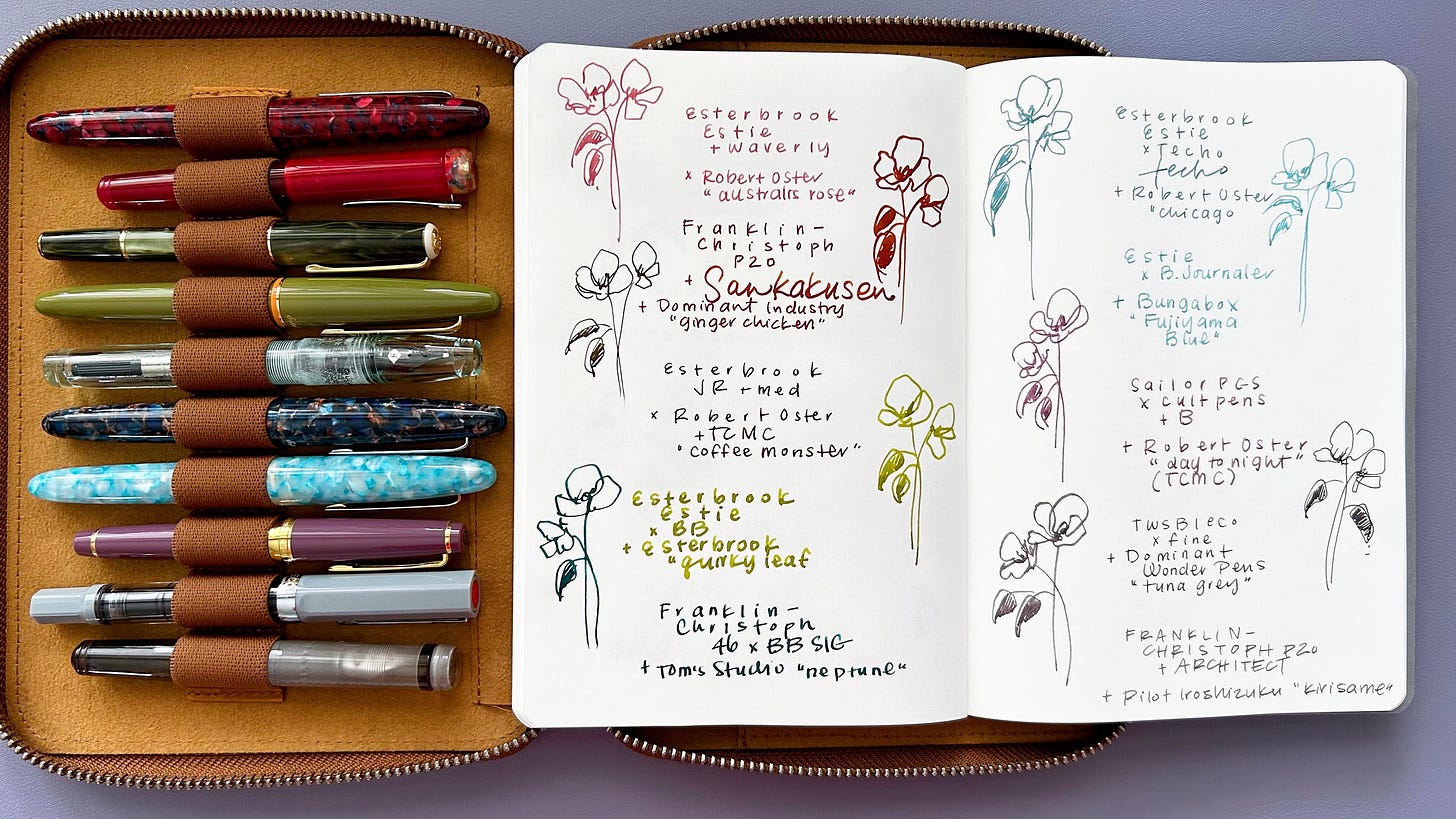 Esterbrook
Estie
+ waverly
x Robert Oster
"australis rose"
Franklin-
Christoph
P20
+ Sankakusen
+ Dominant Industry
"ginger chicken"
Esterbrook
JR + med
x Robert Oster
+ TCMC
"coffee monster"
Esterbrook
Estie
x BB
+ esterbrook
"quirky leaf
Franklin-
Christoph
46 x BB SIG
+ Tom's Studio "neptune"
Esterbrook
Estie
x Techo
techo
+ Robert Oster
"chicago
Estie
x B.Journaler
+ Bungabox
"Fujiyama
Blue"
Sailor PGS
x cult pens
+ B
+ Robert Oster
"day to night"
(TCMC)
TWSBI eco
x fine
+ Dominant
Wonder Pens
"tuna grey"
FRANKLIN-
CHRISTOPH P20
+ ARCHITECT
+ Pilot Iroshizuku "kirisame"